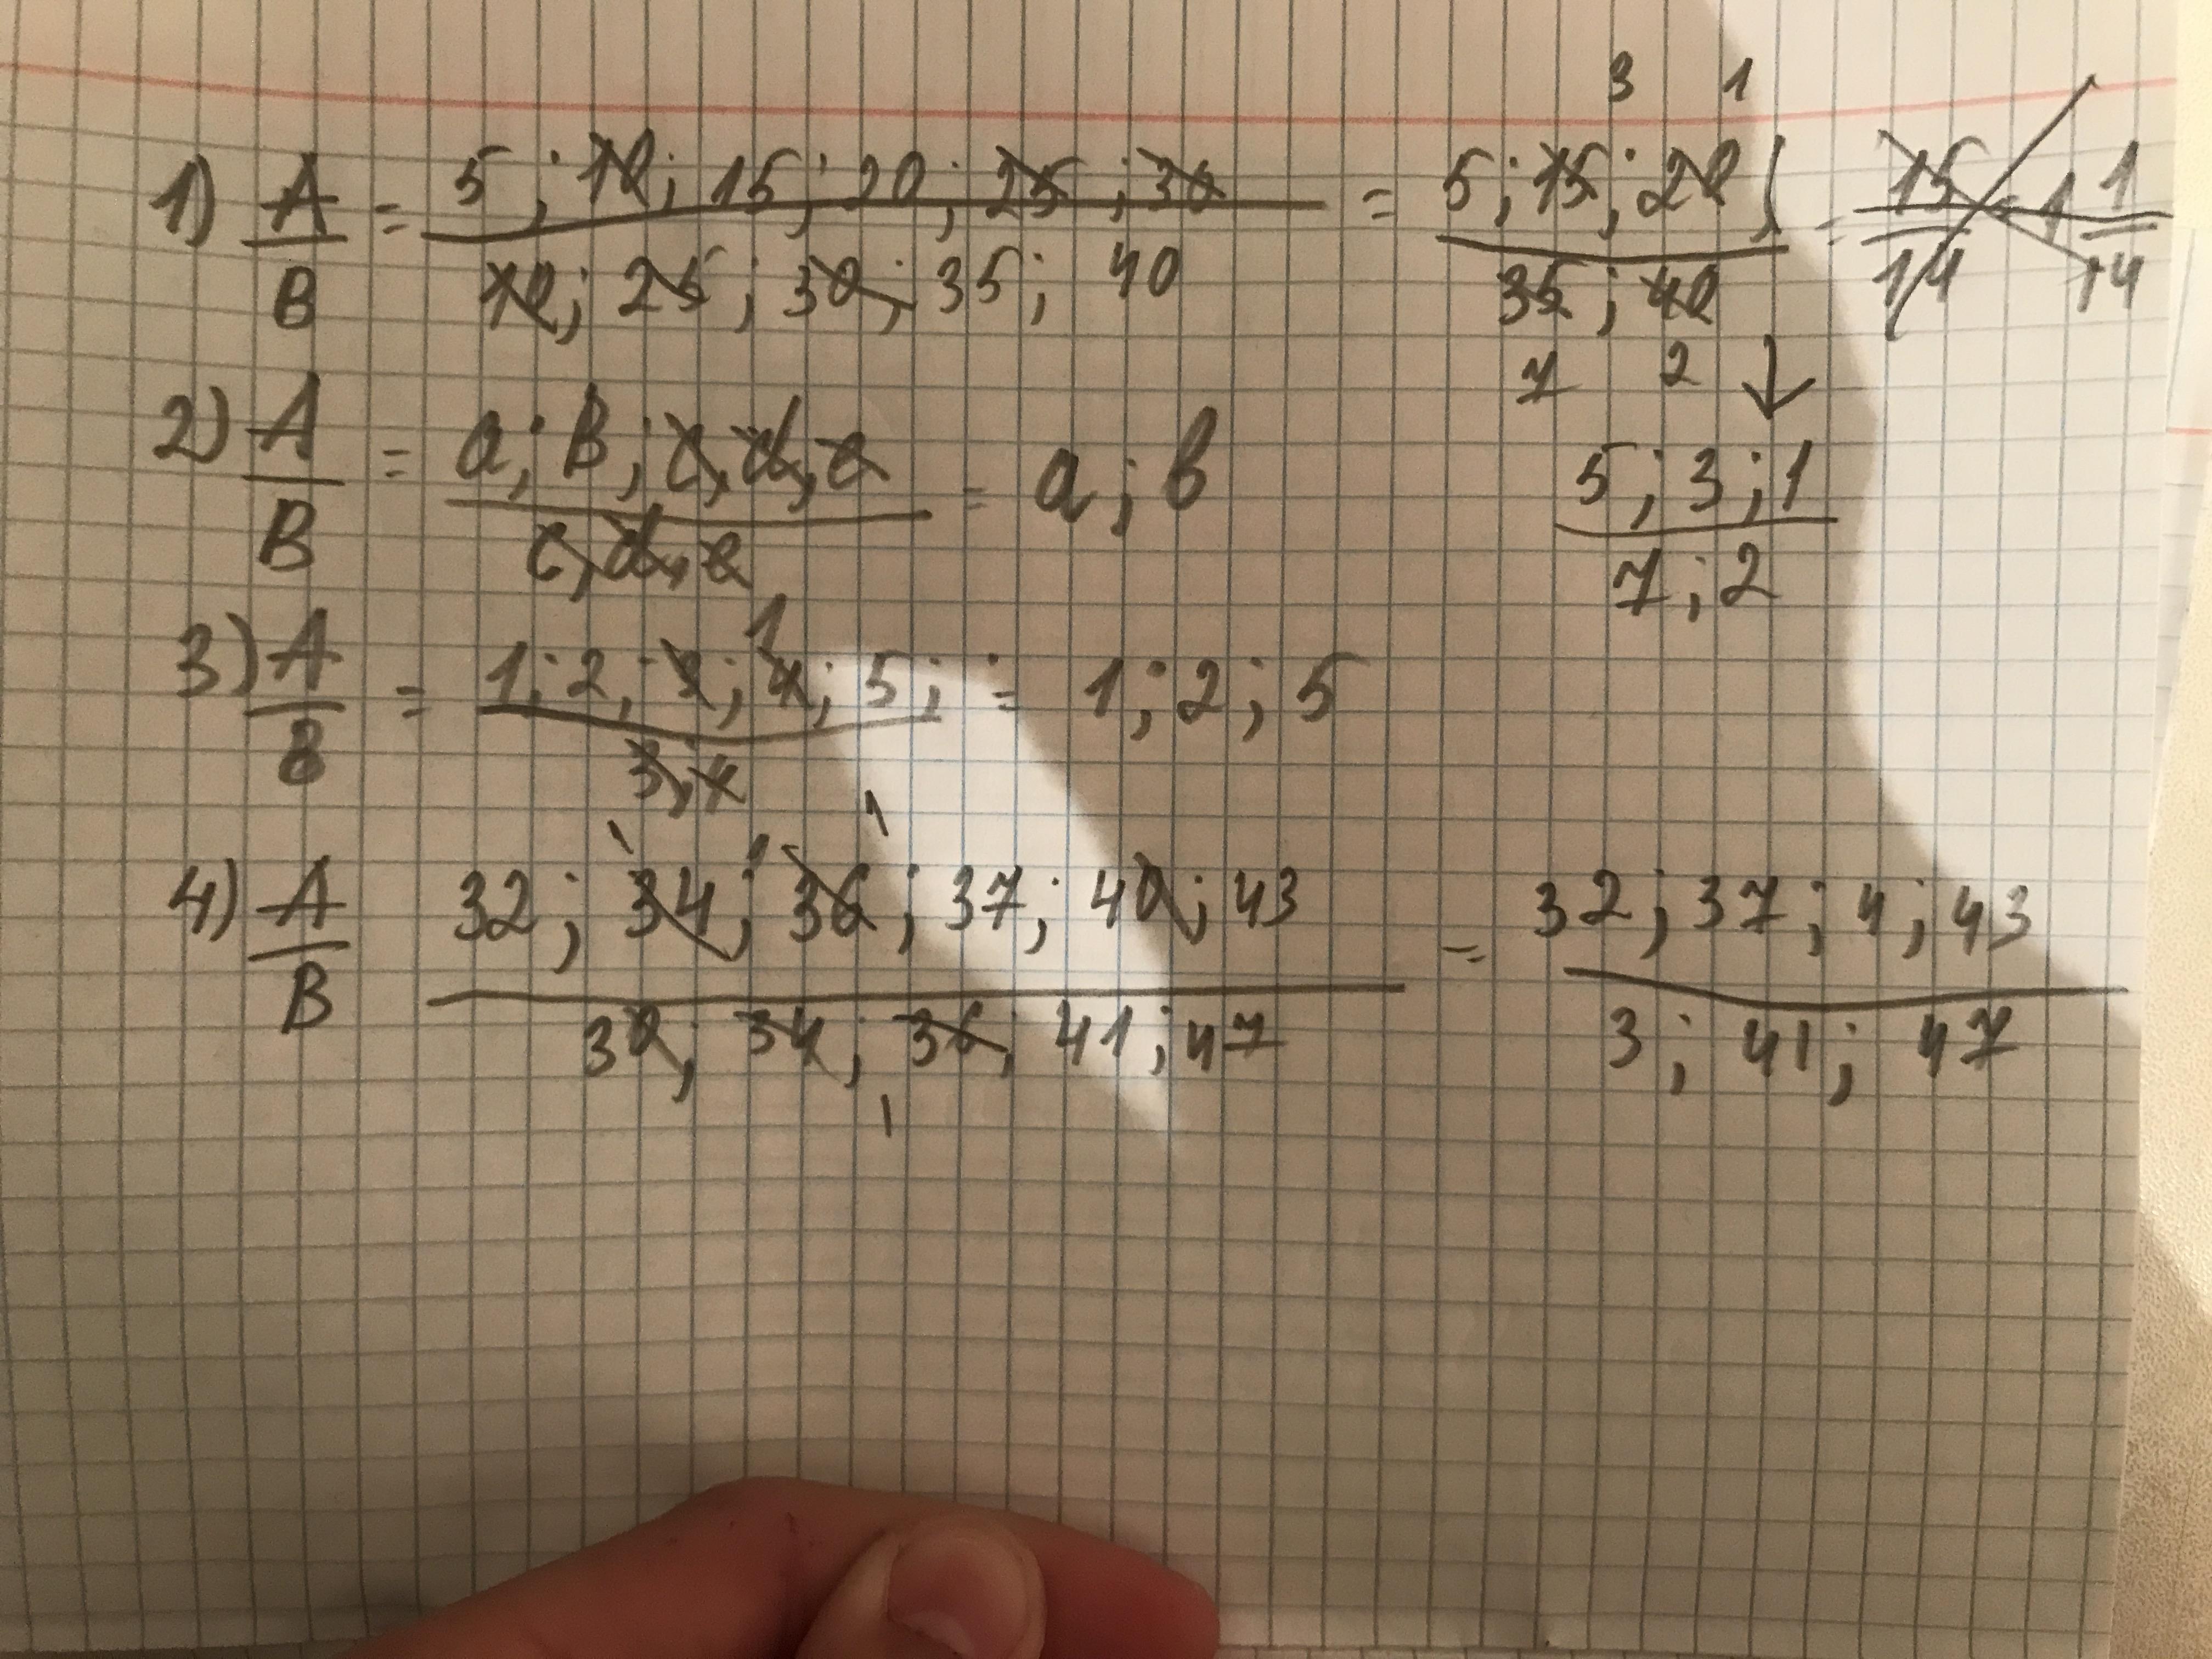 3 1
1) A/B = 5; 10; 15; 20; 25; 30 / 10; 25; 30; 35; 40 = 5; 15; 20 / 35; 40 = 15/14 = 1 1/14
7 2
2) A/B = a; B; c, d, e / c, d, e = a; b
↓
5; 3; 1 / 7; 2
1
3) A/B = 1; 2; 3; 4; 5; / 3, 4 = 1; 2; 5
1 1 1
4) A/B 32; 34; 36; 37; 40; 43 / 30; 34; 36; 41; 47 = 32; 37; 4; 43 / 3; 41; 47
1